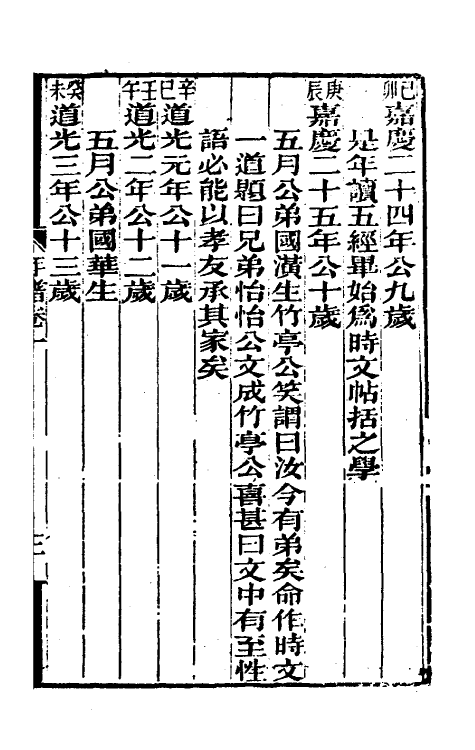 己卯嘉慶二十四年公九歲
是年讀五經畢始爲時文帖括之學
庚辰嘉慶二十五年公十歲
五月公弟國潢生竹亭公笑謂曰汝今有弟矣命作時文
一道題曰兄弟怡怡公文成竹亭公喜甚曰文中有至性
語必能以孝友承其家矣
辛巳道光元年公十一歲
壬午道光二年公十二歲
五月公弟國華生
癸未道光三年公十三歲
年譜卷一